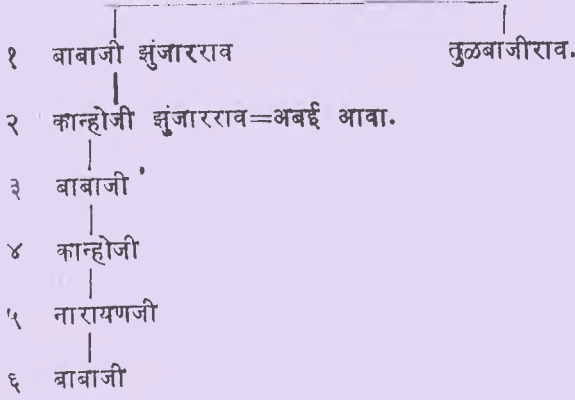 १ बाबाजी झुंजारराव तुळबाजीराव.
२ कान्होजी झुंजारराव=अबई आवा.
३ बाबाजी
४ कान्होजी
५ नारायणजी
६ बाबाजी